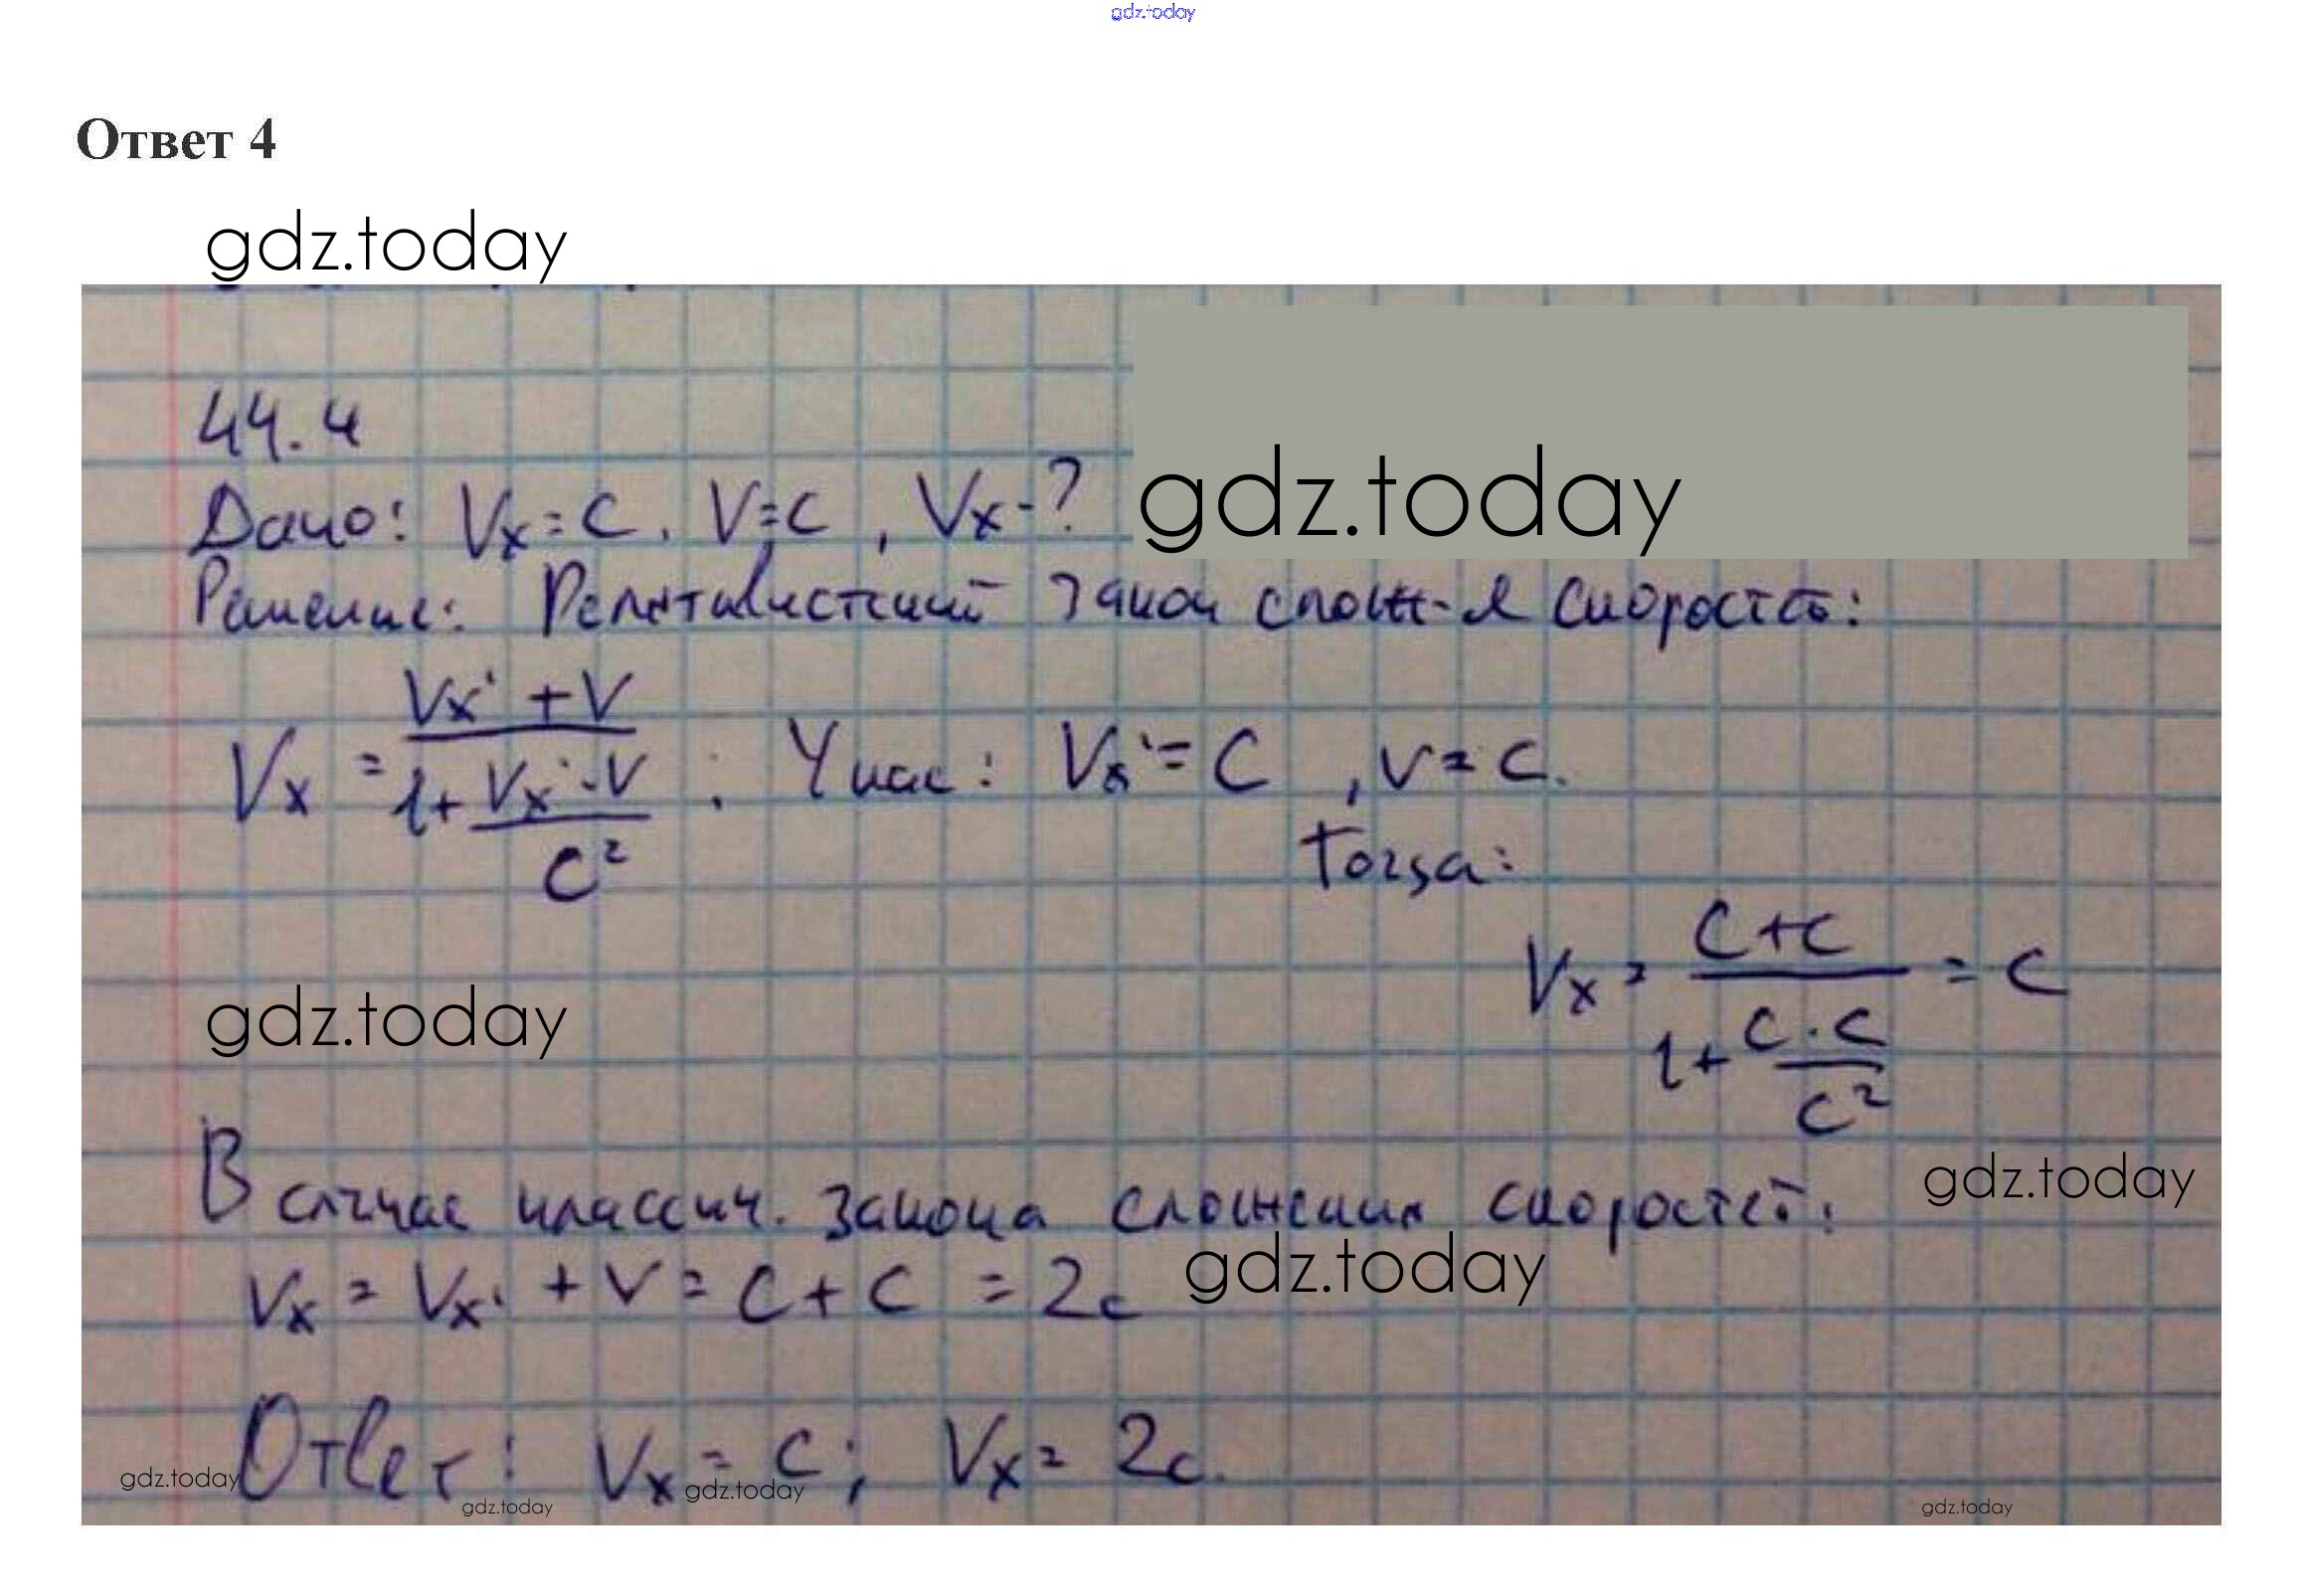 gdz.today
Ответ 4
gdz.today
44.4
Дано: Vx = C, V = C, Vx - ?
gdz.today
Решение: Релятивистский закон слож-я скоростей:
Vx = (Vx' + V) / (1 + (Vx' · V) / C²); У нас: Vx' = C, V = C.
Тогда:
Vx = (C + C) / (1 + (C · C) / C²) = C
gdz.today
gdz.today
В случае классич. закона сложения скоростей:
Vx = Vx' + V = C + C = 2c
gdz.today
Ответ: Vx = C; Vx = 2c.
gdz.today
gdz.today
gdz.today
gdz.today